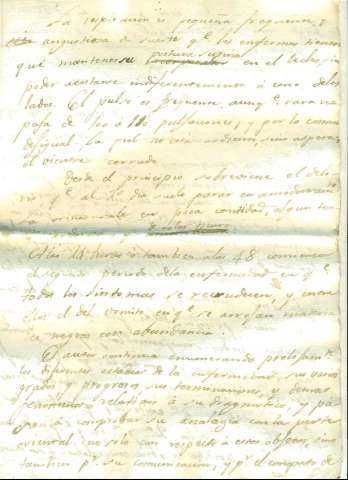 La respiracion es pequeña frequente, y
angustiosa de suerte q.e los enfermos tienen
que mantenerse postura supina en el lecho, sin
poder acostarse indiferentemente á uno de los
lados. El pulso es frequente, aunq.e rara vez
pasa de 100 á 110 pulsaciones, y por lo comun
desigual. La piel no esta ardiente, sino aspera,
el vientre cerrado.
Desde el principio sobreviene el deli
rio, q.e al dia suele parar en
la orina sale en poca cantidad, algun tan
A las 24 horas o tambien a las 48 comienza
el segundo periodo de la enfermedad en q.e
todos los sintomas se recrudecen, y
el del vomito, en q.e se arrojan materia
les negros con abundancia.
El autor continua enumerando prolijam.te
los diferentes estados de la enfermedad, sus varios
grados y progresos, sus terminaciones, y demas
fenomenos relativos á su diagnostico, y pa
sa á comprobar su analogia con la peste
oriental no solo con respecto á estos objetos, sino
tambien p.r su comunicacion, y p.r el conjunto de